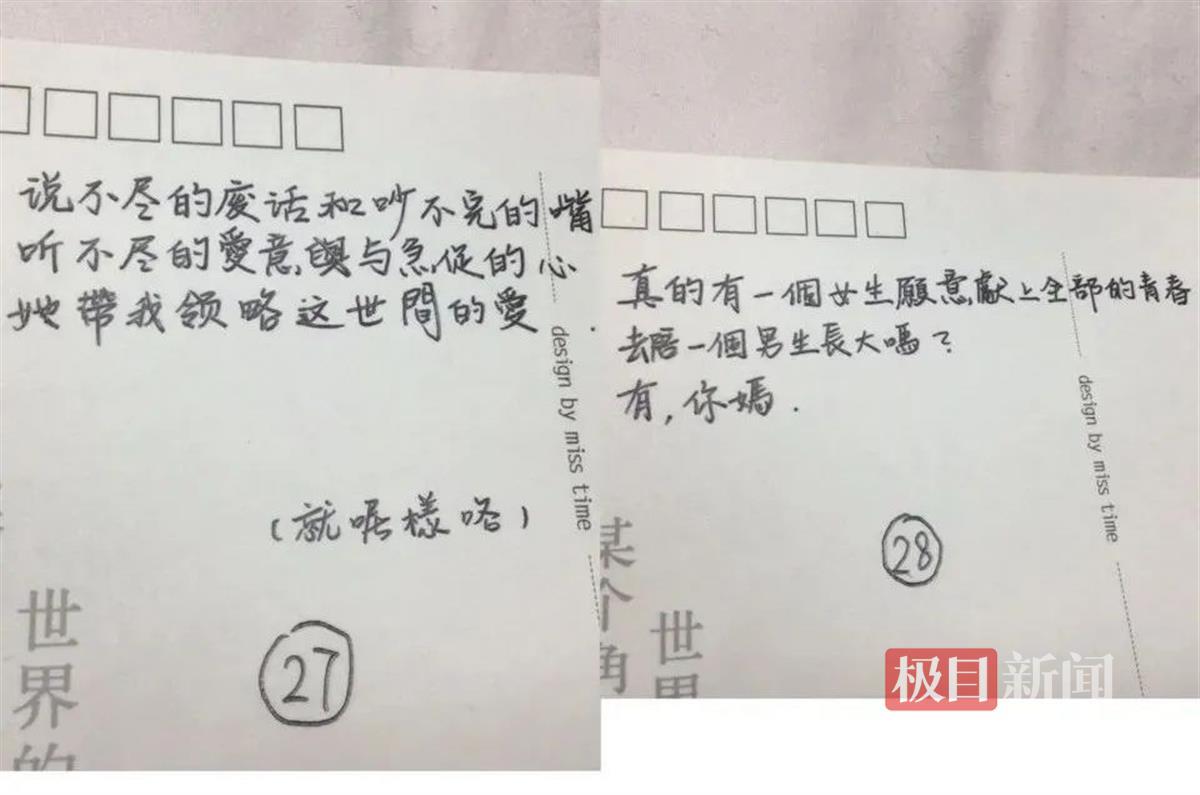 说不尽的废话和吵不完的嘴
听不尽的愛意與与急促的心
她帶我领略这世間的愛.
(就呢樣咯)
27
design by miss time
世界的
真的有一個女生願意獻上全部的青春
去陪一個男生長大嗎?
有,你媽.
28
design by miss time
某个角
世界
极目新闻